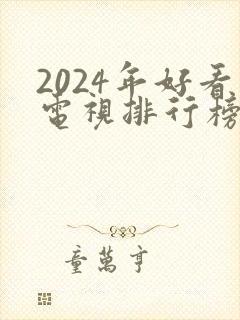 2024年好看
電視排行榜
童萬亨